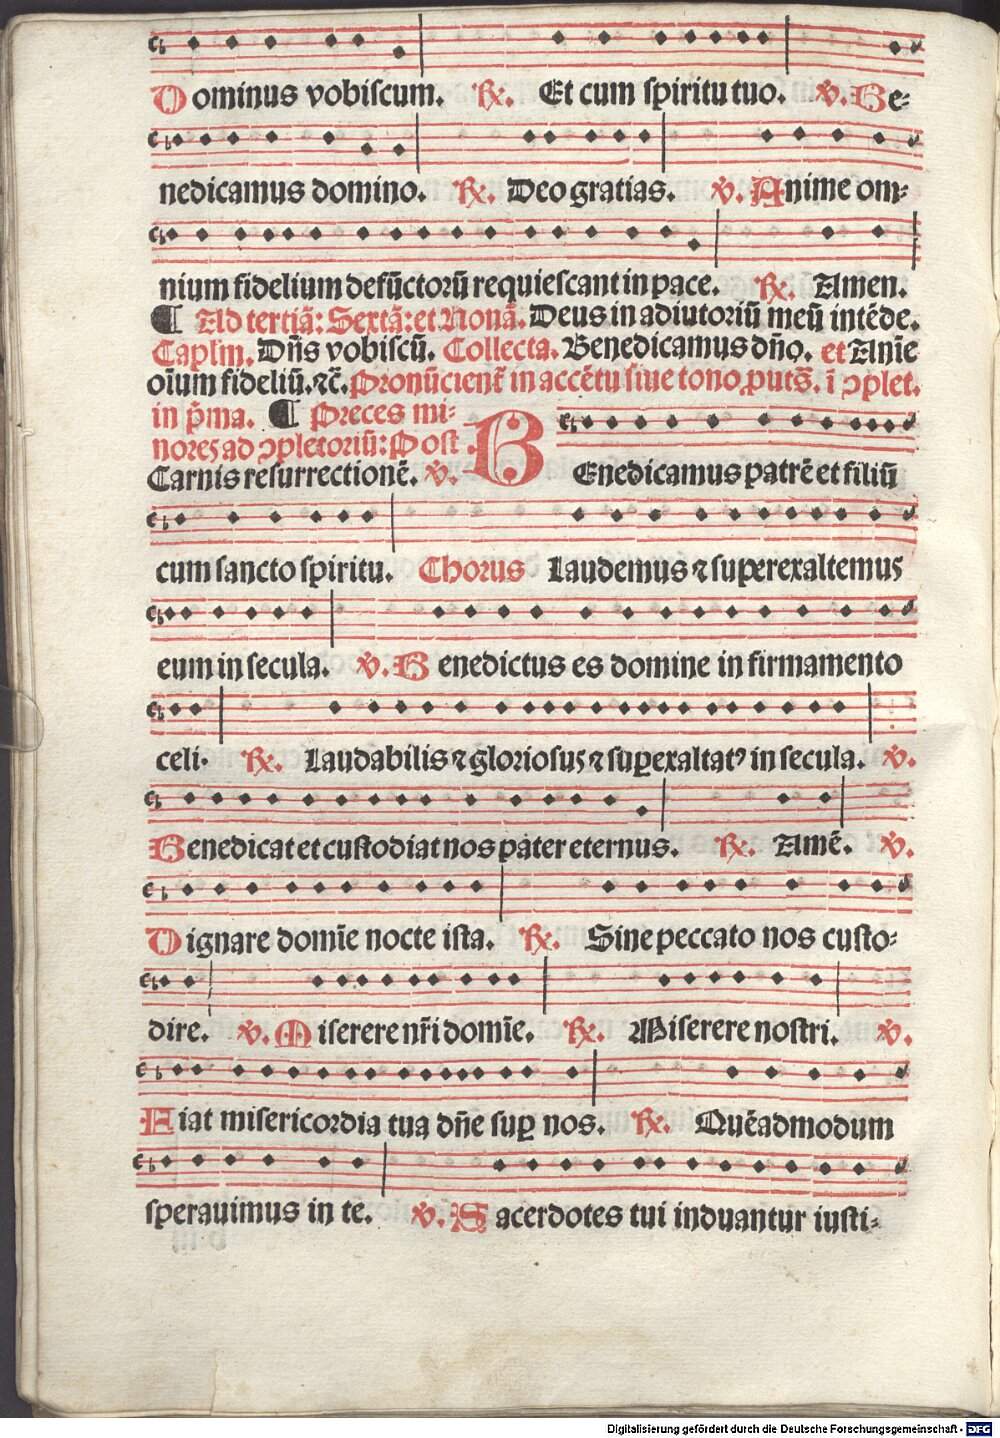 Dominus vobiscum. ℟. Et cum spiritu tuo. ℣. Be⸗
nedicamus domino. ℟. Deo gratias. ℣. Anime om⸗
nium fidelium defūctorū requiescant in pace. ℟. Amen.
¶ Ad tertiā: Sextā: et Nonā. Deus in adiutoriū meū intēde.
Caplm̄. Dn̄s vobiscū. Collecta. Benedicamus dn̄o. et Anīe
oīum fideliū. ⁊c̄. Pronūcient̄ in accētu siue tono, put s̄. ī ↄplet.
in p̄ma. ¶ Preces mi⸗
nores ad ↄpletoriū: Post
Carnis resurrectionē. ℣. BEnedicamus patrē et filiū
cum sancto spiritu. Chorus Laudemus ⁊ superexaltemus
eum in secula. ℣. Benedictus es domine in firmamento
celi. ℟. Laudabilis ⁊ gloriosus ⁊ suꝑexaltatꝰ in secula. ℣.
Benedicat et custodiat nos pater eternus. ℟. Amē. ℣.
Dignare domīe nocte ista. ℟. Sine peccato nos custo⸗
dire. ℣. Miserere nr̄i domīe. ℟. Miserere nostri. ℣.
Fiat misericordia tua dn̄e suꝑ nos. ℟. Quēadmodum
sperauimus in te. ℣. Sacerdotes tui induantur iusti⸗
Digitalisierung gefördert durch die Deutsche Forschungsgemeinschaft - DFG